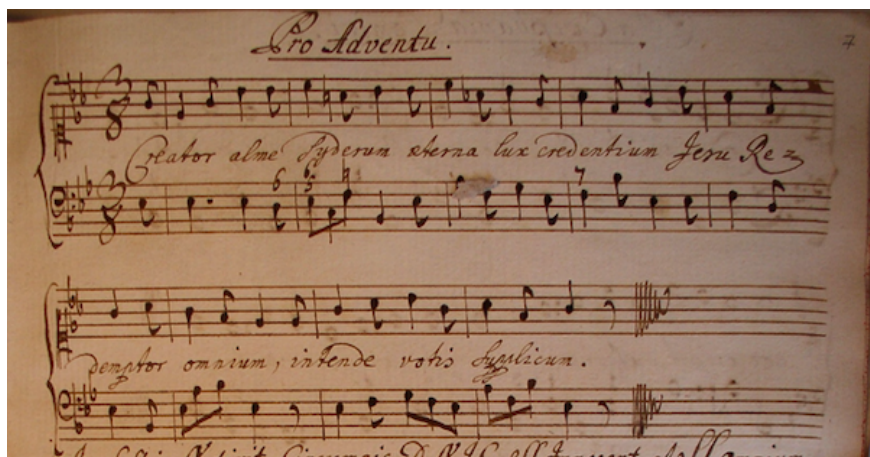 Pro Adventu.
7
3
8
Creator alme Syderum æterna lux credentium Jesu Re=
6 6 5 4 7
3
8
demptor omnium, intende votis supplicum.